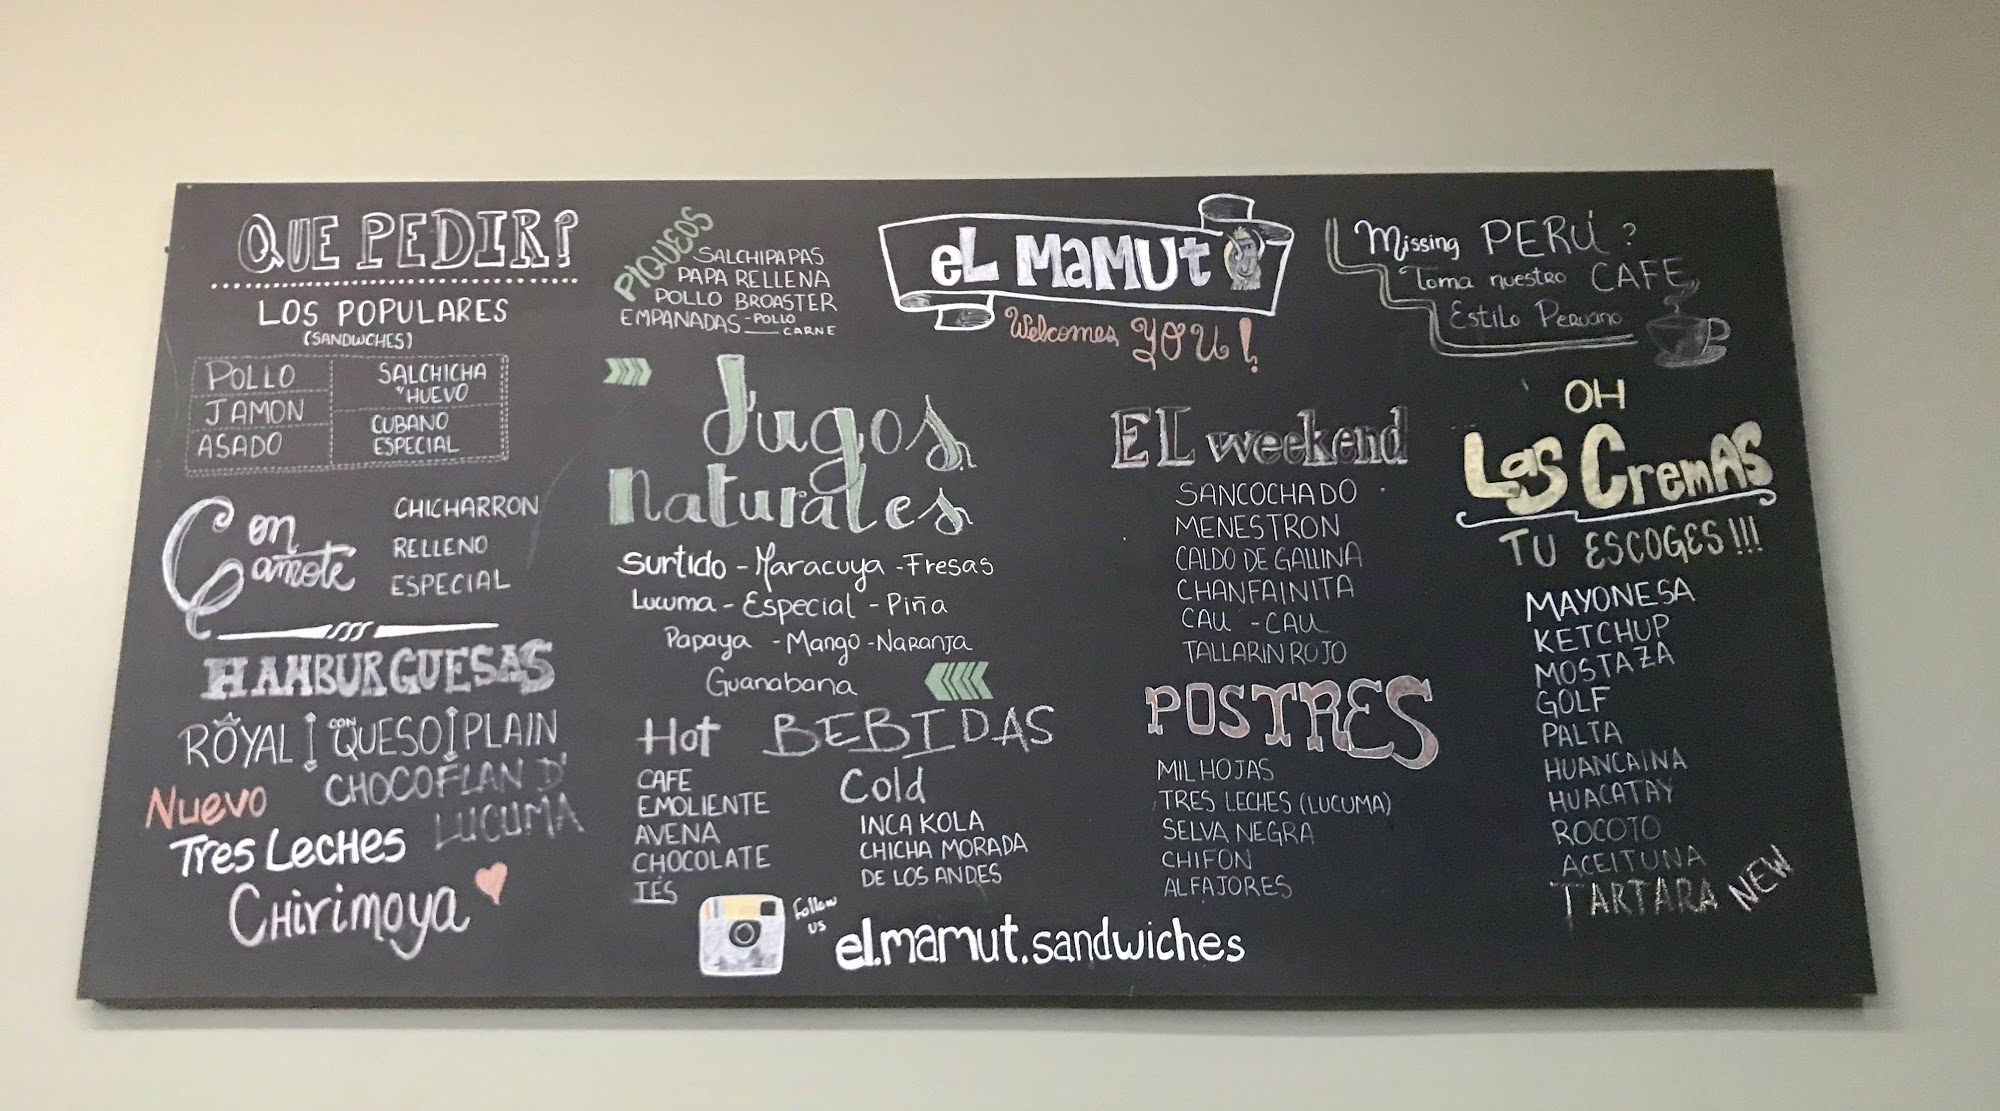 QUE PEDIR?
LOS POPULARES
(SANDWCHES)
POLLO
JAMON
ASADO
SALCHICHA
Y HUEVO
CUBANO
ESPECIAL
Con Camote
CHICHARRON
RELLENO
ESPECIAL
HAMBURGUESAS
ROYAL CON QUESO PLAIN
NUEVO
CHOCOFLAN D'
LUCUMA
Tres Leches
CHirimoya
PIQUEOS
SALCHIPAPAS
PAPA RELLENA
POLLO BROASTER
EMPANADAS - POLLO
CARNE
Jugos
naturales
Surtido - Maracuya - Fresas
Lucuma - Especial - Piña
Papaya - Mango - Naranja
Guanabana
BEBIDAS
Hot
CAFE
EMOLIENTE
AVENA
CHOCOLATE
TÉS
Cold
INCA KOLA
CHICHA MORADA
DE LOS ANDES
eL MaMUt
Welcomes YOU!
EL weekend
SANCOCHADO
MENESTRON
CALDO DE GALLINA
CHANFAINITA
CAU - CAU
TALLARIN ROJO
POSTRES
MIL HOJAS
TRES LECHES (LUCUMA)
SELVA NEGRA
CHIFON
ALFAJORES
Missing PERÚ?
Toma nuestro CAFE
Estilo Peruano
OH
Las CremAS
TU ESCOGES!!!
MAYONESA
KETCHUP
MOSTAZA
GOLF
PALTA
HUANCAINA
HUACATAY
ROCOTO
ACEITUNA
TARTARA NEW
Follow
us
el.mamut.sandwiches